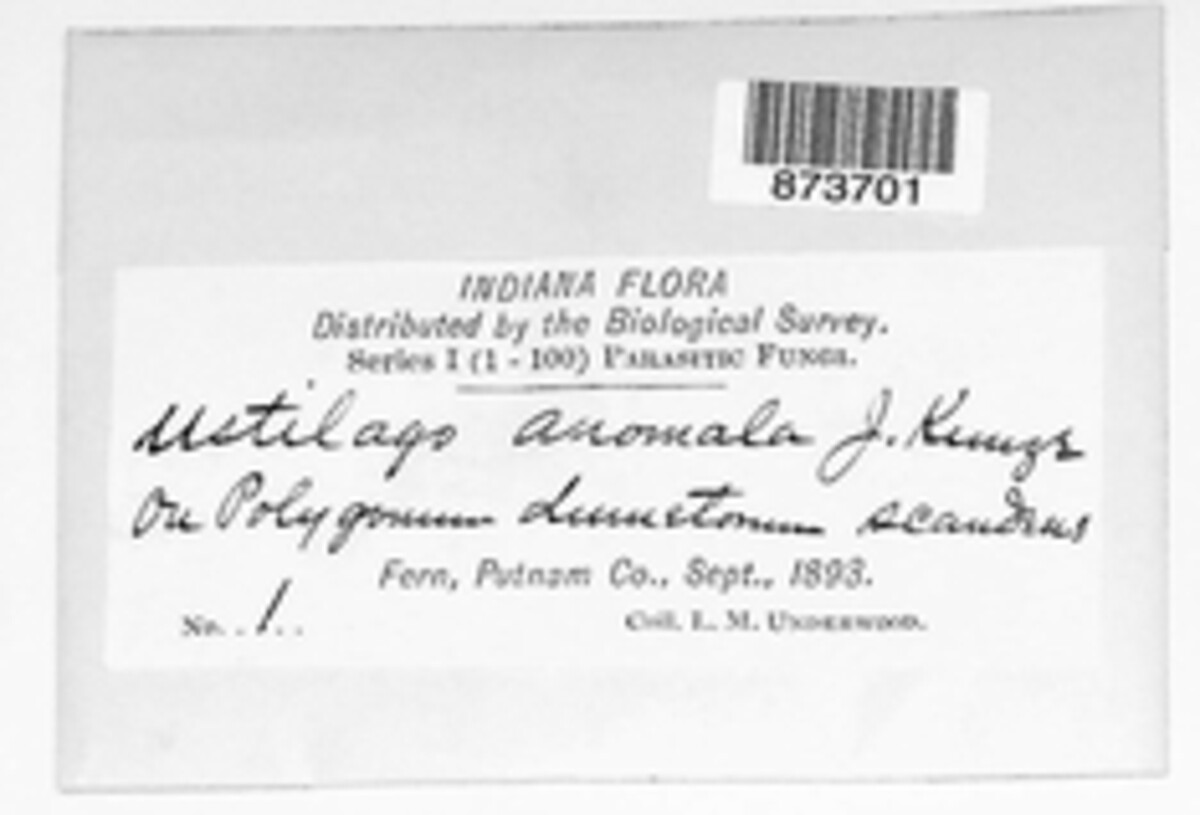 873701
INDIANA FLORA
Distributed by the Biological Survey.
Series I (1 - 100) PARASITIC FUNGI.
Ustilago anomala J. Kunze
On Polygonum dumetorum scandens
Fern, Putnam Co., Sept., 1893.
No. . 1 . . Coll. L. M. UNDERWOOD.